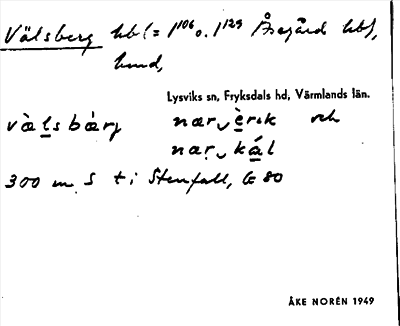 Välsberg hb (= 1¹⁰⁶ o. 1¹²⁹ Åsegård hb),
hmd,
Lysviks sn, Fryksdals hd, Värmlands län.
và̀lsbàrj nær‿èrɩk och
nær‿kál
300 m S t i Stenfall, G 80
ÅKE NORÉN 1949